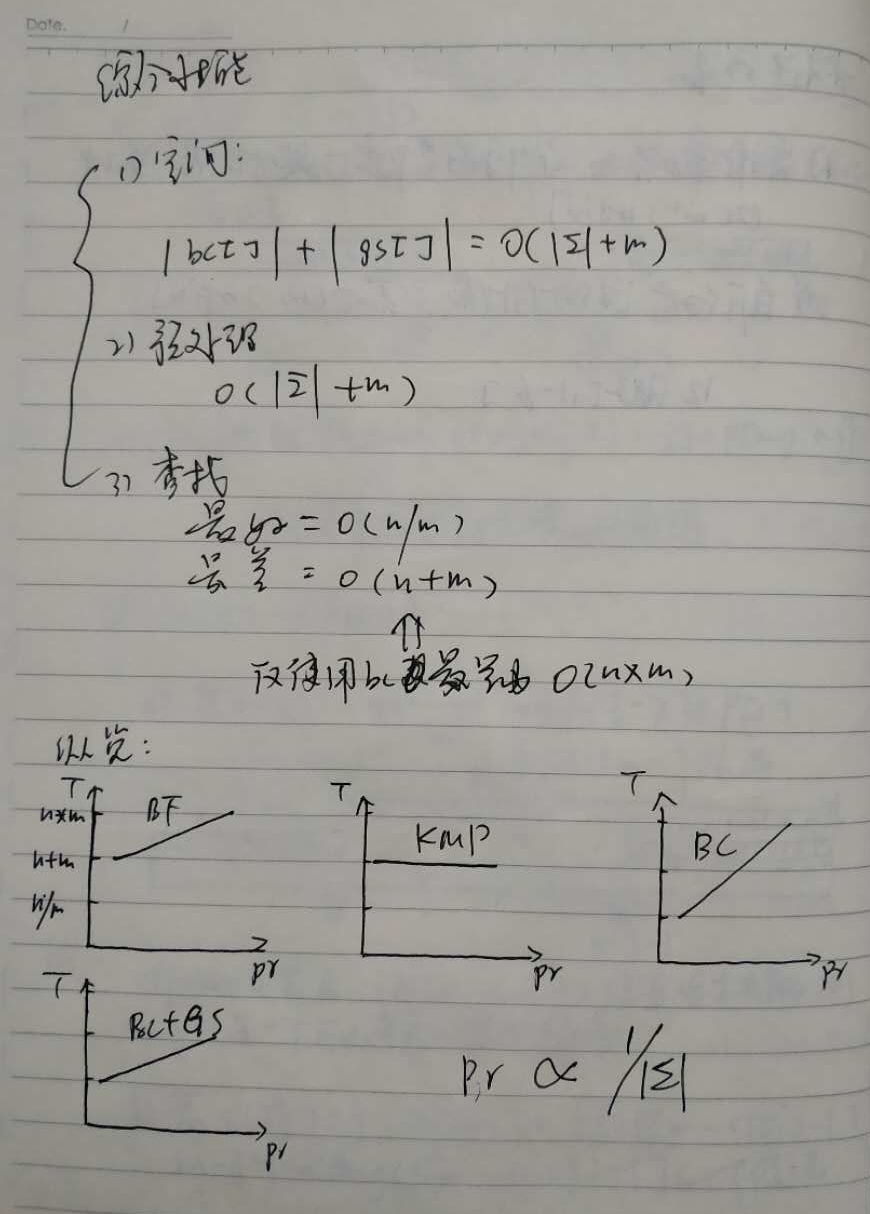 Date. /
综合性能
1) 空间:
|bc[]| + |gs[]| = O(|Σ|+m)
2) 预处理
O(|Σ|+m)
3) 查找
最好 = O(n/m)
最差 = O(n+m)
⇑
仅使用bc 最差为 O(n×m)
纵览:
T n×m n+m n/m BF pr
T KMP pr
T BC pr
T BC+GS pr
Pr ∝ 1/|Σ|